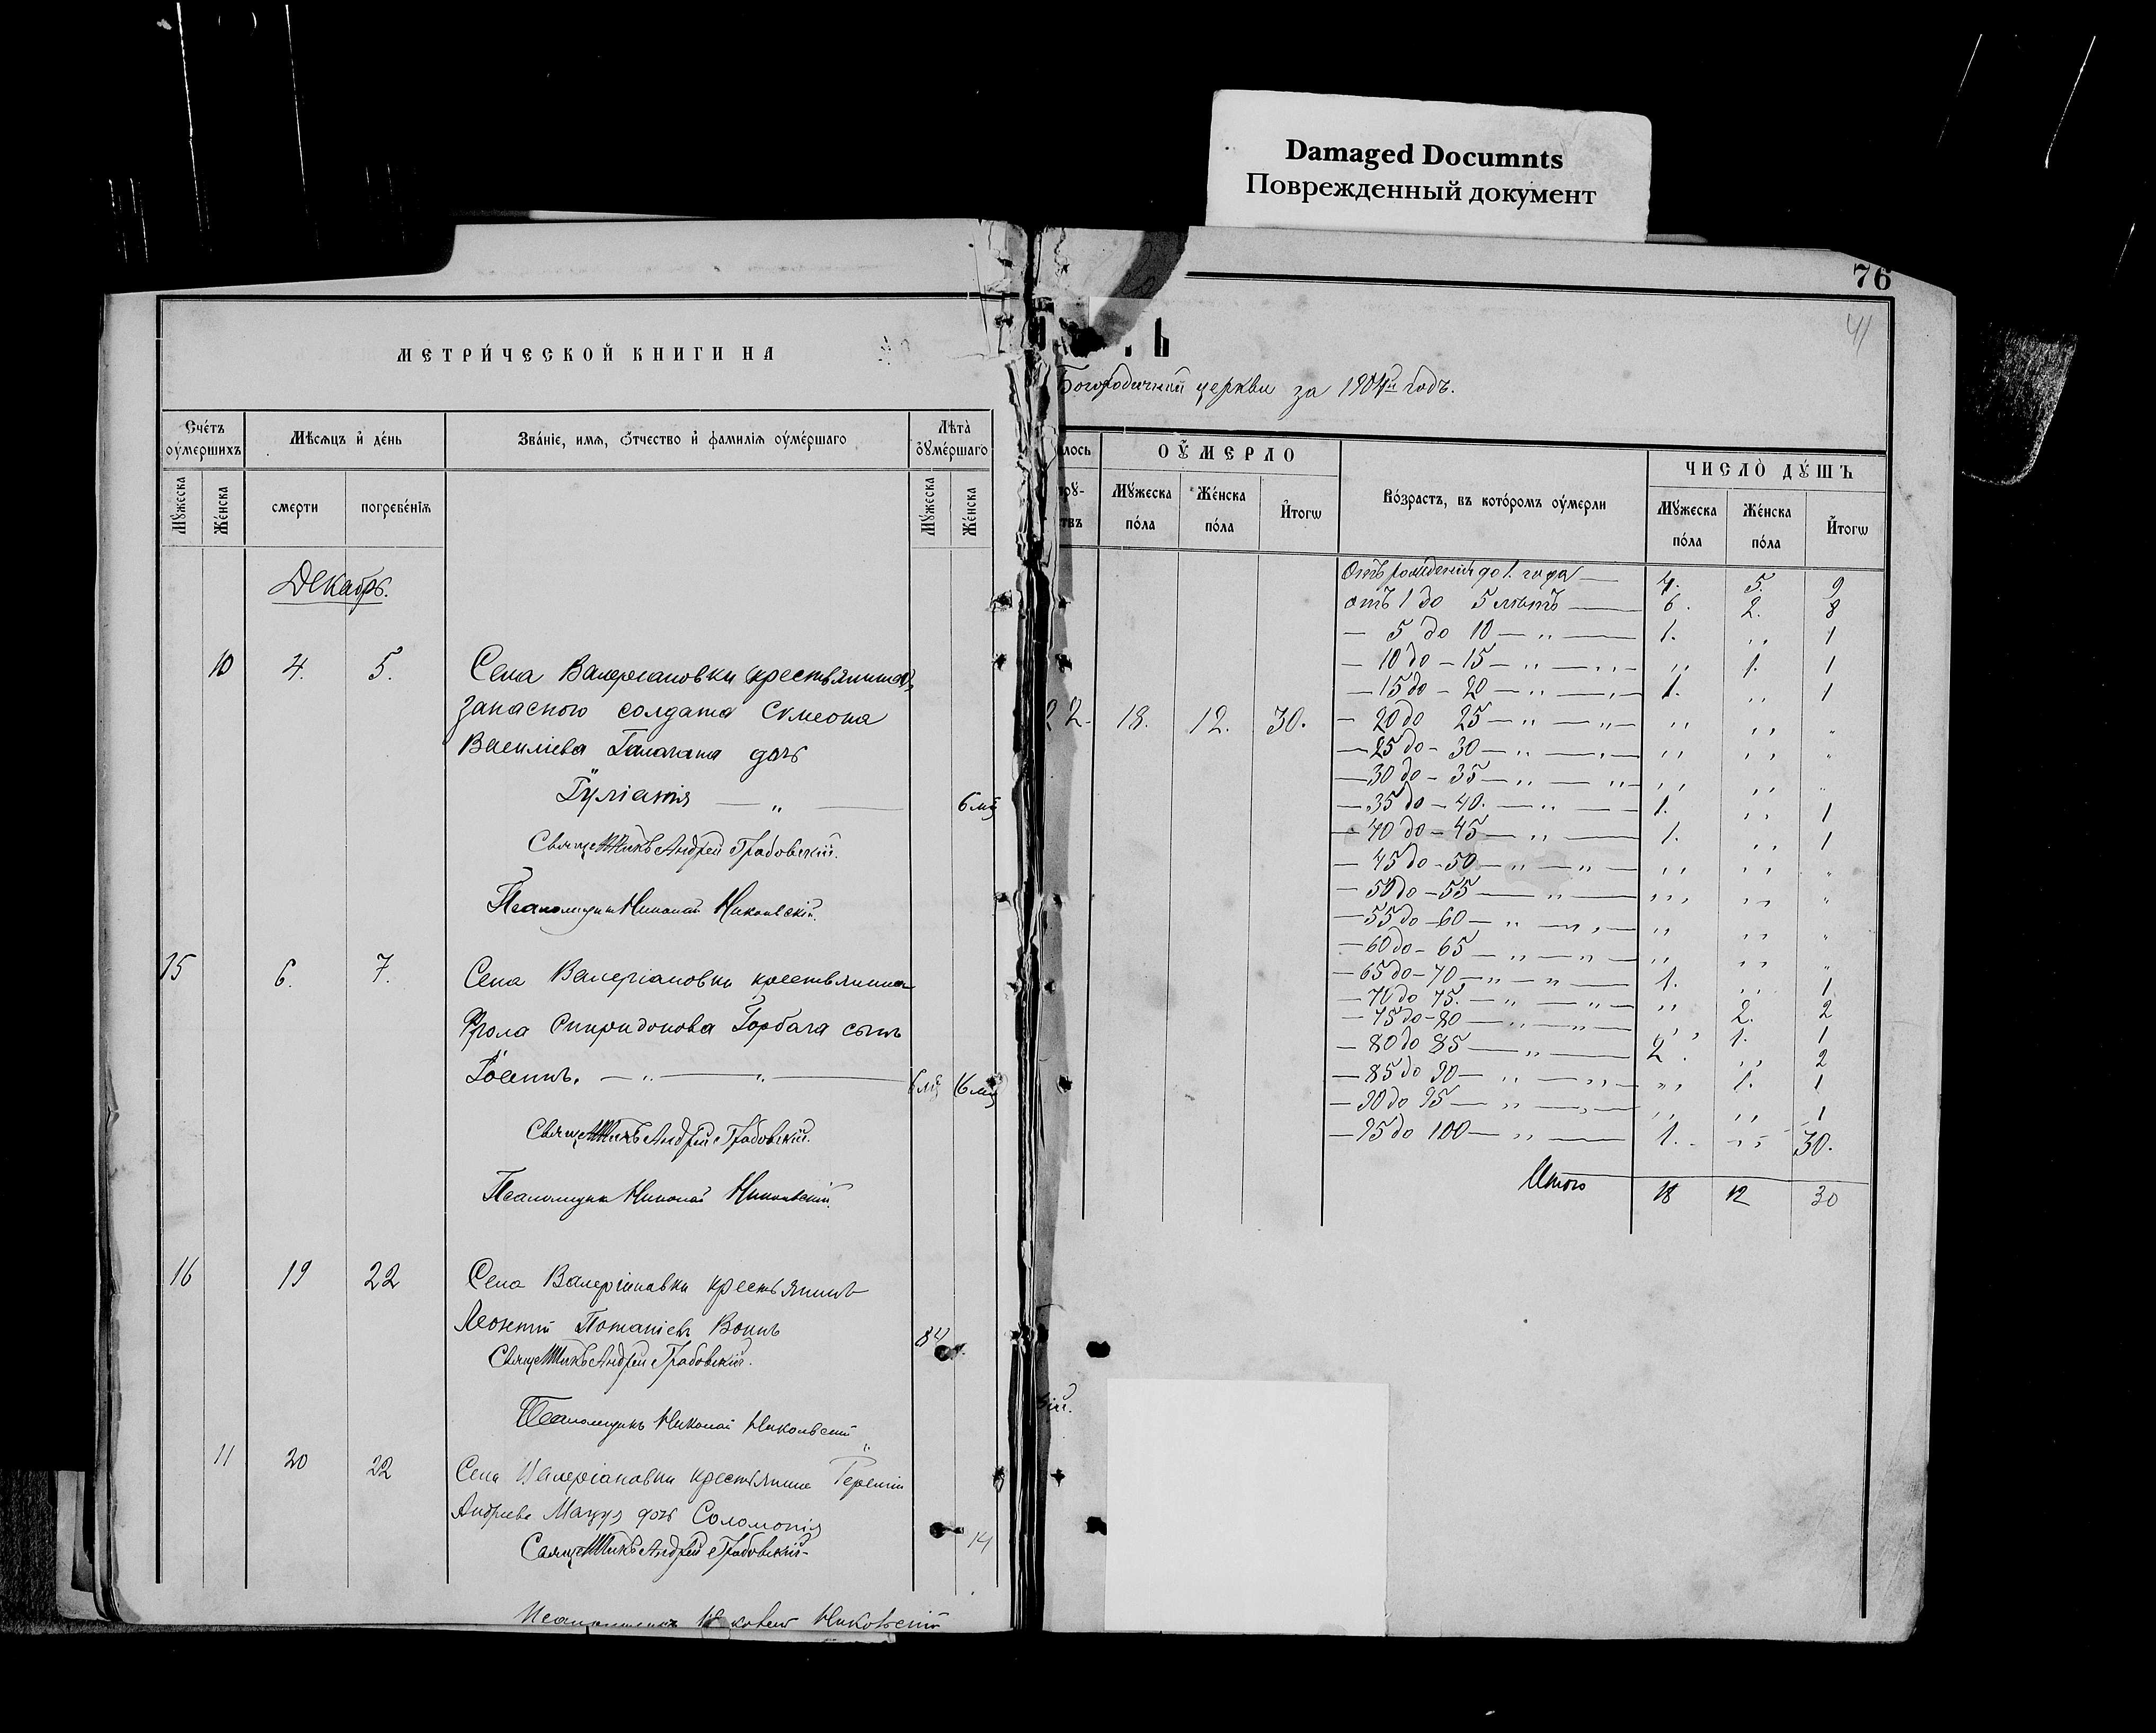 Damaged Documnts
Поврежденный документ
76
41
МЕТРИ́ЧЕСКОЙ КНИГИ НА
Богородичной церкви за 1904й годъ.
Счетъ оумершихъ
Мѣсяцъ и день
Званіе, имя, отчество и фамилія оумершаго
Лѣта оумершаго
Мужеска
Женска
смерти
погребенія
Мужеска
Женска
Декабрь.
10 4. 5. Села Валеріановки крестьянина
запасного солдата Симеона
Василіева Галагана дочь
Іуліанія — „ — 6 мц
Священникъ Андрей Грабовскій.
Псаломщикъ Николай Никольскій.
15 6. 7. Села Валеріановки крестьянина
Фрола Спиридонова Горбача сынъ
Іосифъ. — „ — „ — 6 мц 6 мц
Священникъ Андрей Грабовскій.
Псаломщикъ Николай Никольскій.
16 19 22 Села Валеріановки крестьянинъ
Леонтій Потапіевъ 84
Священникъ Андрей Грабовскій.
Псаломщикъ Николай Никольскій
11 20 22 Села Валеріановки крестьянина Терентія
Андреева дочь Соломонія 14
Священникъ Андрей Грабовскій
Псаломщикъ Николай Никольскій
лось
ОУМЕРЛО
Возрастъ, въ которомъ оумерли
ЧИСЛО ДУШЪ
Мужеска пола
Женска пола
Итогѡ
Мужеска пола
Женска пола
Итогѡ
22. 18. 12. 30.
Отъ рожденія до 1. года — 4. 5. 9
отъ 1 до 5 лѣтъ — 6. 2. 8
— 5 до 10 — „ — 1. „ 1
— 10 до — 15 — „ — „ — „ 1. 1
— 15 до — 20 — „ — „ — 1. „ 1
— 20 до 25 — „ — „ — „ „ „
— 25 до — 30 — „ — „ — „ „ „
— 30 до — 35 — „ — „ — „ „ „
— 35 до — 40. — „ — 1. „ 1
— 40 до — 45 — „ — 1. „ 1
— 45 до — 50 — „ — „ — „ „ „
— 50 до — 55 — „ — „ „ „
— 55 до — 60 — „ — „ — „ „ „
— 60 до — 65 — „ — „ — „ „ „
— 65 до — 70 — „ — „ — 1. „ 1
— 70 до 75. — „ — „ — „ 2. 2
— 75 до — 80 — „ — „ — „ 1. 1
— 80 до 85 — „ — 2. „ 2
— 85 до 90 — „ — „ — „ 1. 1
— 90 до 95 — „ — „ — „ „ 1
— 95 до 100 — „ — 1. „ 30.
Итого 18 12 30